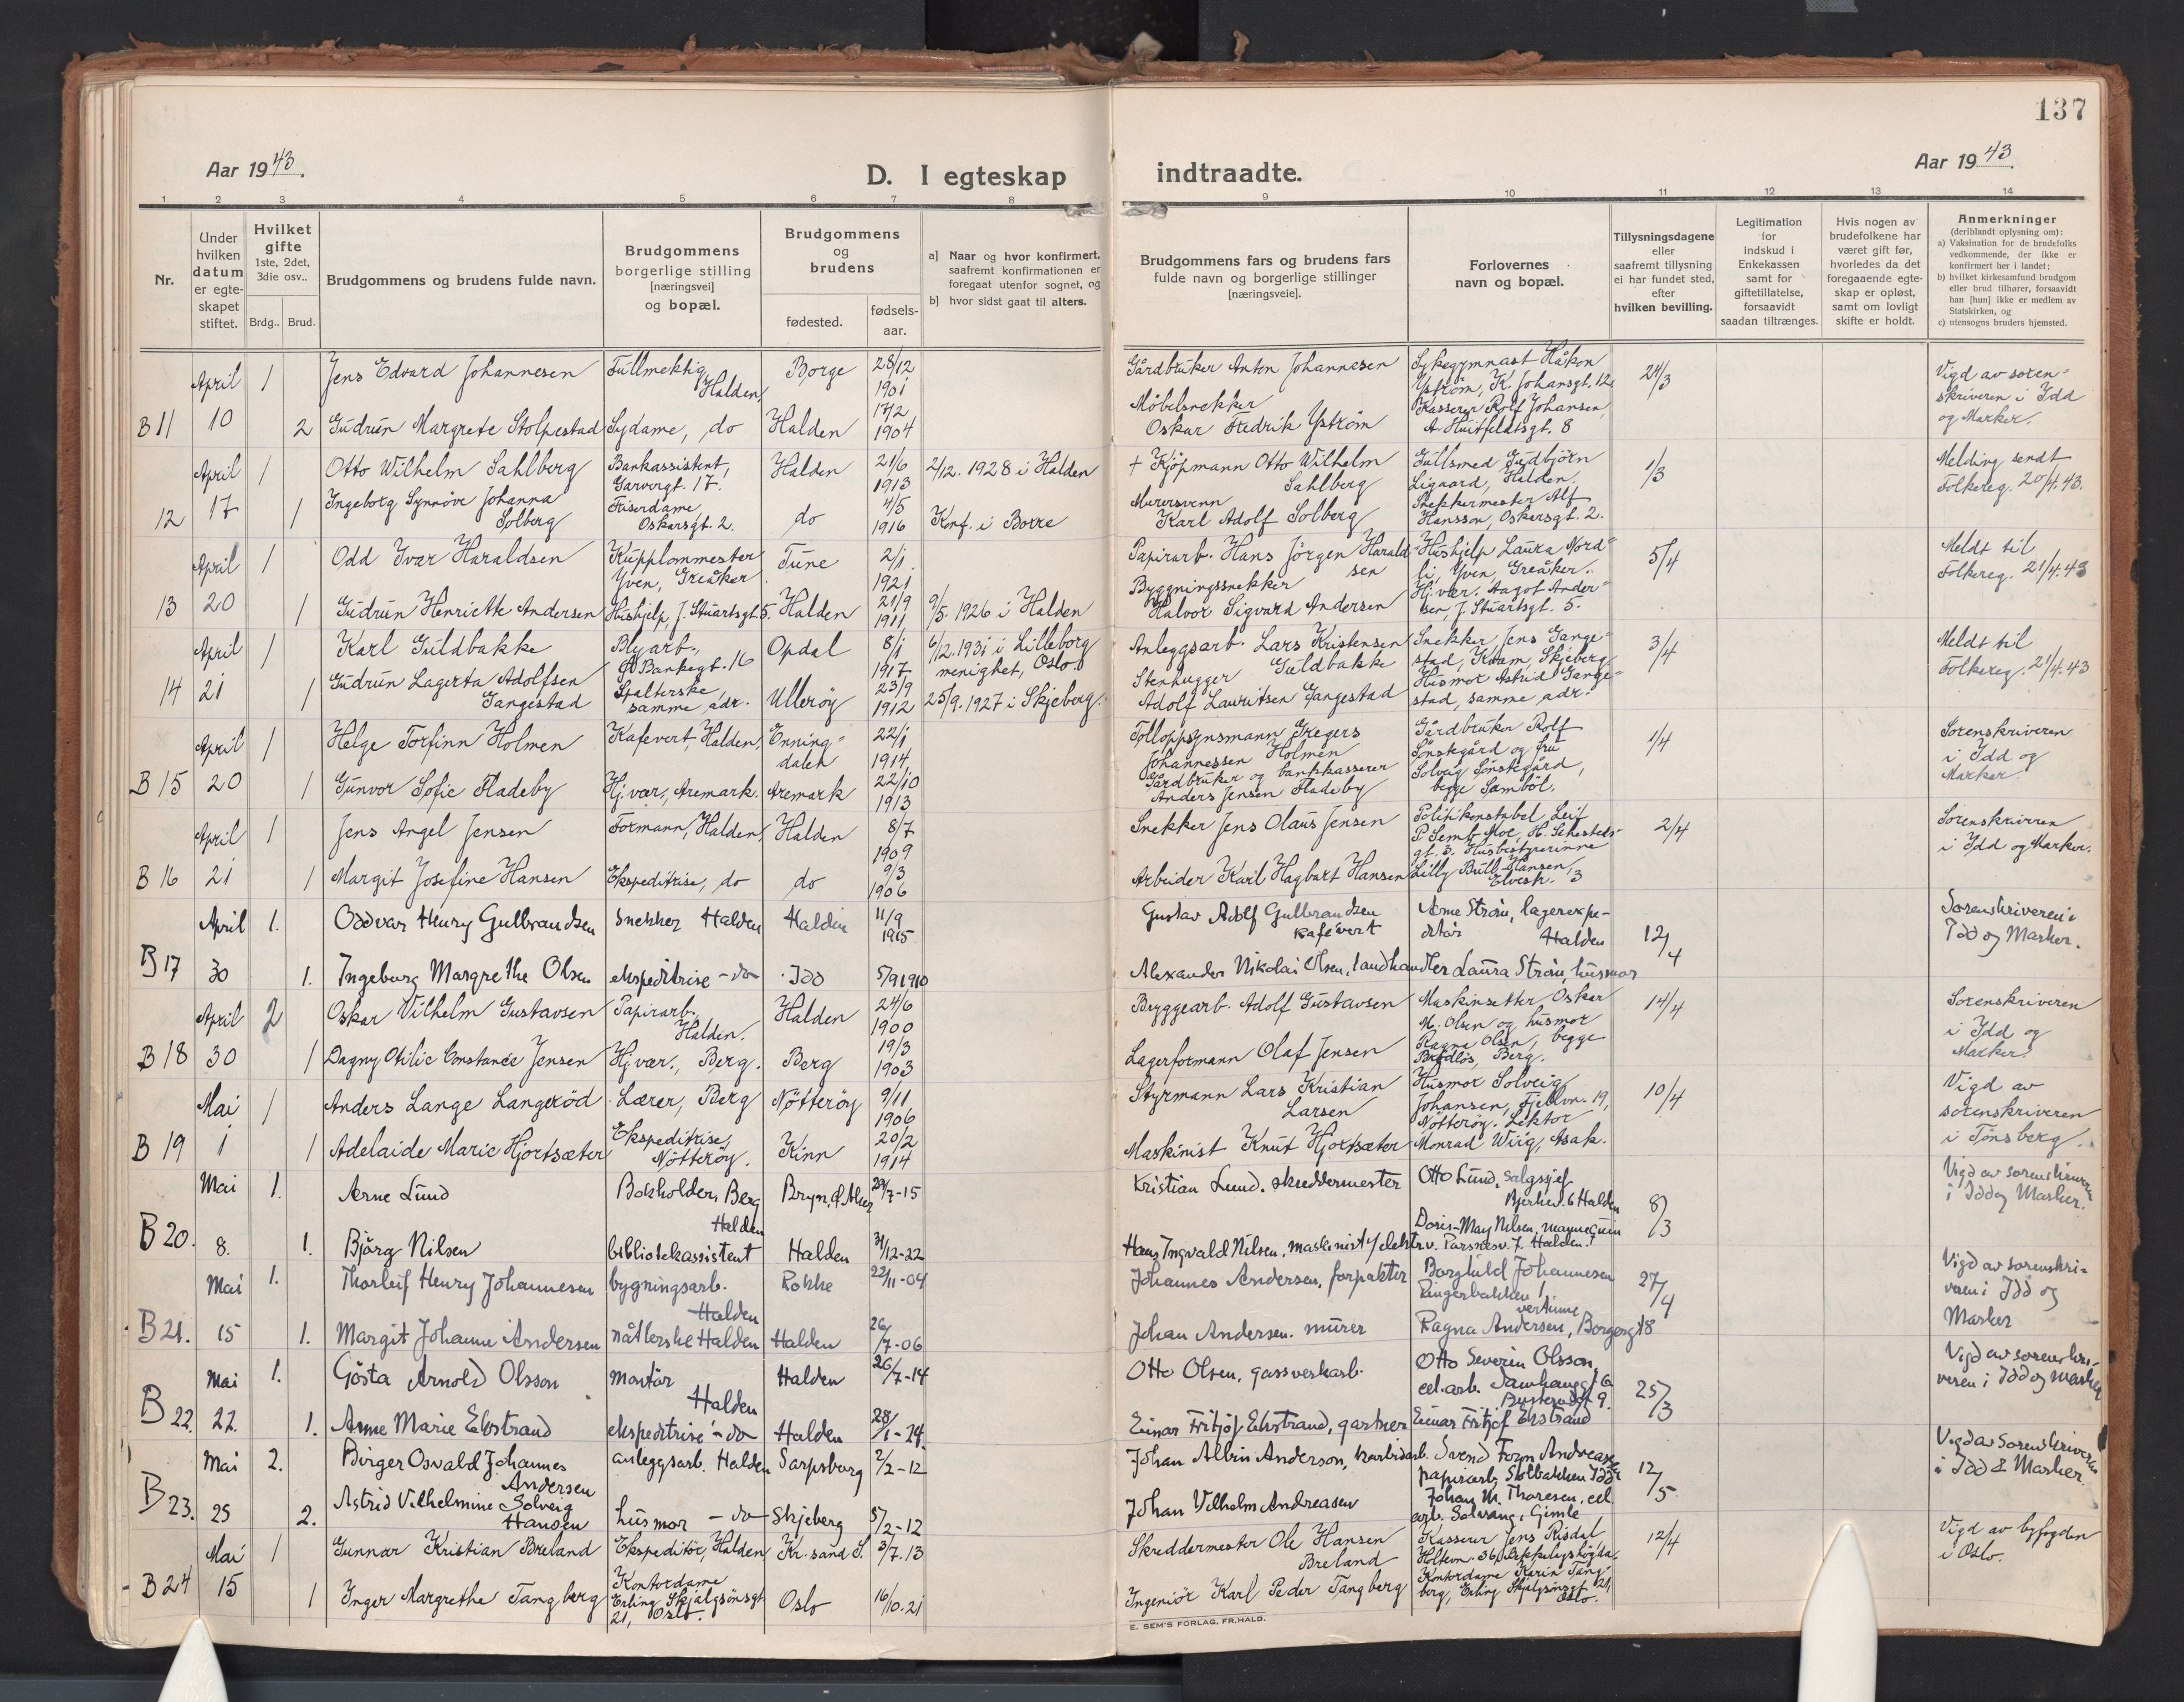 137
Aar 1943.
D. I egteskap indtraadte.
Aar 1943.
1 2 3 4 5 6 7 8 9 10 11 12 13 14
Nr.
Under hvilken datum er egte-skapet stiftet.
Hvilket gifte 1ste, 2det, 3die osv..
Brdg.. Brud.
Brudgommens og brudens fulde navn.
Brudgommens borgerlige stilling [næringsvei] og bopæl.
Brudgommens og brudens
fødested. fødsels-aar.
a] Naar og hvor konfirmert, saafremt konfirmationen er foregaat utenfor sognet, og
b] hvor sidst gaat til alters.
Brudgommens fars og brudens fars fulde navn og borgerlige stillinger [næringsveie].
Forlovernes navn og bopæl.
Tillysningsdagene eller saafremt tillysning ei har fundet sted, efter hvilken bevilling.
Legitimation for indskud i Enkekassen samt for giftetillatelse, forsaavidt saadan tiltrænges.
Hvis nogen av brudefolkene har været gift før, hvorledes da det foregaaende egte-skap er opløst, samt om lovligt skifte er holdt.
Anmerkninger
(deriblandt oplysning om):
a) Vaksination for de brudefolks vedkommende, der ikke er konfirmert her i landet;
b) hvilket kirkesamfund brudgom eller brud tilhører, forsaavidt han [hun] ikke er medlem av Statskirken, og
c) utensogns bruders hjemsted.
April 1 Jens Edvard Johannesen Fullmektig Halden, Borge 28/12 1901 Gårdbruker Anton Johannesen Sykegymnast Håkon Ystrøm, K. Johansgt. 12, 24/3 Vigd av soren-skriveren i Idd og Marker.
B 11 10 2 Gudrun Margrete Stolpestad Sydame, do Halden 17/2 1904 Møbelsnekker Oskar Fredrik Ystrøm Kasserer Rolf Johansen, A. Huitfeldtsgt. 8
April 1 Otto Wilhelm Sahlberg Bankassistent, Garvergt. 17. Halden 21/6 1913 2/12. 1928 i Halden + Kjøpmann Otto Wilhelm Sahlberg Gullsmed Gudbjørn Ligaard, Halden. 1/3 Melding sendt Folkereg. 20/4.43.
12 17 1 Ingeborg Synnøve Johanna Solberg Friserdame, Oskarsgt. 2. do 4/5 1916 Konf. i Borre Murersvenn Karl Adolf Solberg Stekkermester Alf Hansson, Oskarsgt. 2.
April 1 Odd Ivar Haraldsen Kupplommester Yven, Greåker Tune 2/1 1921 Papirarb. Hans Jørgen Haraldsen Hushjelp Laura Nord-li, Yven, Greåker. 5/4 Meldt til Folkereg. 21/4.43
13 20 1 Gudrun Henriette Andersen Hushjelp, J. Stuartsgt. 5. Halden 21/9 1911 9/5. 1926 i Halden Byggningssnekker Halvor Sigvard Andersen Hj.vær. Aagot Ander-sen, J. Stuartsgt. 5.
April 1 Karl Guldbakke Blyarb., Ø. Bankegt. 16 Opdal 8/1 1917 6/12.1931 i Lilleborg menighet, Oslo Anleggsarb. Lars Kristensen Guldbakke Snekker Jens Gange-stad, Kvam, Skjeberg 3/4 Meldt til Folkereg. 21/4.43
14 21 1 Gudrun Lagerta Adolfsen Gangestad Spalterske, samme adr. Ullerøy 23/9 1912 25/9.1927 i Skjeberg. Stenhugger Adolf Lauritsen Gangestad Husmor Astrid Gange-stad, samme adr.
April 1 Helge Torfinn Holmen Kafevert, Halden, Enning-dalen 22/1 1914, Tolloppsynsmann Gregers Johannessen Holmen Gårdbruker Rolf Sønskgård og fru 1/4 Sorenskriveren i Idd og Marker.
B 15 20 1 Gunvor Sofie Fladeby Hj.vær., Aremark. Aremark 22/10 1913 Gårdbruker og bankkasserer Anders Jensen Fladeby Solveig Sønskgård, begge Sambøl.
April 1 Jens Angel Jensen Formann, Halden, Halden 8/7 1909 Snekker Jens Olaus Jensen Politikonstabel Leif P. Semb Moe, H. Sehesteds-gt. 3. Husbestyrerinne 2/4 Sorenskriveren i Idd og Marker.
B 16 21 1 Margit Josefine Hansen Ekspeditrise, do do 9/3 1906 Arbeider Karl Hagbart Hansen Lilly Bull-Hansen, Elvesh. 3
April 1. Oddvar Henry Gulbrandsen snekker Halden Halden 11/9 1915 Gustav Adolf Gulbrandsen kafévert Arne Strøm, lagerexpe-ditør Halden 12/4 Sorenskriveren i Idd og Marker.
B 17 30 1. Ingeborg Margrethe Olsen ekspeditrise - do - Idd 5/9 1910 Alexander Nikolai Olsen, landhandler Laura Strøm, husmor
April 2 Oskar Vilhelm Gustavsen Papirarb. Halden. Halden 24/6 1900 Bryggearb. Adolf Gustavsen Maskinsetter Oskar M. Olsen og husmor 14/4 Sorenskriveren i Idd og Marker.
B 18 30 1 Dagny Otilie Constance Jensen Hj.vær., Berg. Berg 19/3 1903 Lagerformann Olaf Jensen Ragna Olsen, begge Brødløs, Berg.
Mai 1 Anders Lange Langerød Lærer, Berg Nøtterøy 9/11 1906 Styrmann Lars Kristian Larsen Husmor Solveig Johansen, Fjellvn. 19, Nøtterøy. 10/4 Vigd av sorenskriveren i Tønsberg.
B 19 1 1 Adelaide Marie Hjortsæter Ekspeditrise, Nøtterøy. Kinn 20/2 1914 Maskinist Knut Hjortsæter Lektor Monrad Wiig, Asak.
Mai 1. Arne Lund Bokholder, Berg Halden Bryn, Ø. Aker 24/7-15 Kristian Lund. skreddermester Otto Lund, salgssjef Bjerkev. 6 Halden 8/3 Vigd av sorenskriveren i Idd og Marker.
B 20. 8. 1. Bjørg Nilsen bibliotekassistent Halden 31/12-22 Hans Ingvald Nilsen, maskinist v/elektrv. Doris-May Nilsen, mannequin Tarsnesv. 7. Halden.
Mai 1. Thorleif Henry Johannesen bygningsarb. Halden Rokke 22/11-04 Johannes Andersen, forpakter Borghild Johannesen Ringerbakken 27/4 Vigd av sorenskri-veren i Idd og Marker
B 21. 15 1. Margit Johanne Andersen nåtlerske Halden Halden 26/7-06 Johan Andersen. murer vertinne Ragna Andersen, Borgergt 8
Mai 1. Gösta Arnold Olsson montør Halden Halden 26/7-14 Otto Olsen, gassverkarb. Otto Severin Olsson, cel.arb. 25/3 Vigd av sorenskri-veren i Idd og Marker
B 22. 22. 1. Anne Marie Ekstrand ekspeditrise - do - Halden 28/1-24. Einar Fritjöf Ekstrand, gartner Einar Fritjof Ekstrand
Mai 2. Birger Osvald Johannes Andersen anleggsarb. Halden Sarpsborg 2/2-12 Johan Albin Anderson, karbidarb. Svend Foyn Andreasen papirarb. Stolbakken Idd 12/5 Vigd av Sorenskriveren i Idd & Marker
B 23. 25 2. Astrid Vilhelmine Solveig Hansen husmor - do - Skjeberg 5/2-12 Johan Vilhelm Andreasen Johan M. Thoresen, cel. arb. Solvang, Gimle
Mai 1 Gunnar Kristian Breland Ekspeditør, Halden Kr.sand S. 3/7.13 Skreddermester Ole Hansen Breland Kasserer Jens Risdal Holtevn. 36, 12/4 Vigd av byfogden i Oslo.
B 24 15 1 Inger Margrethe Tangberg Kontordame Erling Skjalgsønsgt 21, Oslo. Oslo 16/10.21 Ingeniør Karl Peder Tangberg Kontordame Karin Tang-berg, Erling Skjalgsønsgt 21, Oslo.
E. SEM'S FORLAG, FR.HALD.